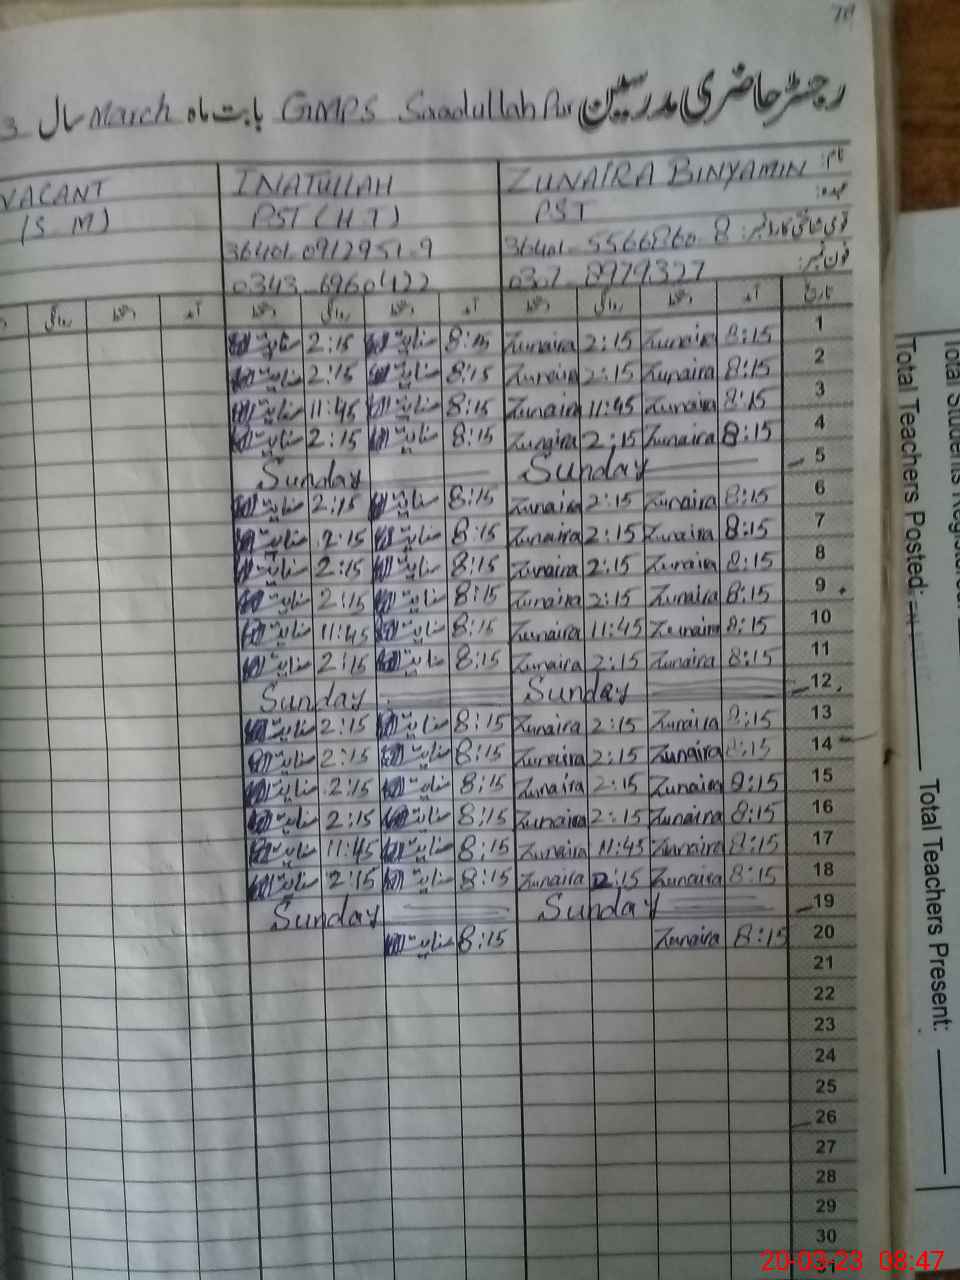 70
رجسٹر حاضری مدرسین GMPS Saadullah Pur بابت ماہ March سال 3
نام: ZUNAIRA BINYAMIN INATULLAH VACANT
عہدہ: PST PST (H.T) (S M)
قومی شناختی کارڈ نمبر: 36401-5566860-8 36401-0912951-9
فون نمبر: 0307-8979327 0343-6960422
تاریخ آمد دستخط روانگی دستخط آمد دستخط روانگی دستخط آمد دستخط روانگی
1 8:15 Zunaira 2:15 Zunaira 8:15 عنایت 2:15 عنایت
2 8:15 Zunaira 2:15 Zunaira 8:15 عنایت 2:15 عنایت
3 8:15 Zunaira 11:45 Zunaira 8:15 عنایت 11:45 عنایت
4 8:15 Zunaira 2:15 Zunaira 8:15 عنایت 2:15 عنایت
5 Sunday Sunday
6 8:15 Zunaira 2:15 Zunaira 8:15 عنایت 2:15 عنایت
7 8:15 Zunaira 2:15 Zunaira 8:15 عنایت 2:15 عنایت
8 8:15 Zunaira 2:15 Zunaira 8:15 عنایت 2:15 عنایت
9 8:15 Zunaira 2:15 Zunaira 8:15 عنایت 2:15 عنایت
10 8:15 Zunaira 11:45 Zunaira 8:15 عنایت 11:45 عنایت
11 8:15 Zunaira 2:15 Zunaira 8:15 عنایت 2:15 عنایت
12 Sunday Sunday
13 8:15 Zunaira 2:15 Zunaira 8:15 عنایت 2:15 عنایت
14 8:15 Zunaira 2:15 Zunaira 8:15 عنایت 2:15 عنایت
15 8:15 Zunaira 2:15 Zunaira 8:15 عنایت 2:15 عنایت
16 8:15 Zunaira 2:15 Zunaira 8:15 عنایت 2:15 عنایت
17 8:15 Zunaira 11:45 Zunaira 8:15 عنایت 11:45 عنایت
18 8:15 Zunaira 2:15 Zunaira 8:15 عنایت 2:15 عنایت
19 Sunday Sunday
20 8:15 Zunaira 8:15 عنایت
21
22
23
24
25
26
27
28
29
30
31
Total Students Registered:
Total Teachers Posted: Total Teachers Present:
20-03-23 08:47